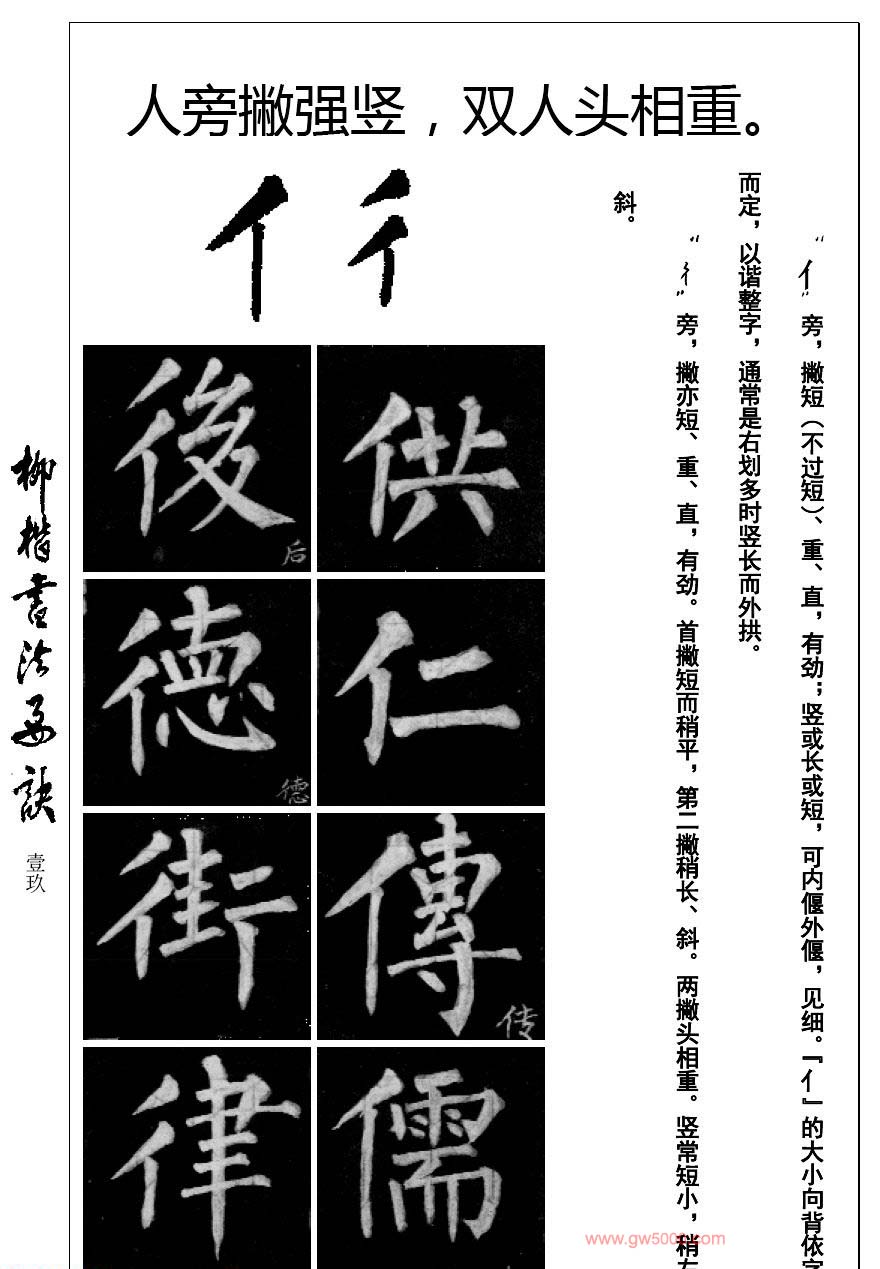 人旁撇强竖，双人头相重。
亻彳
“亻”旁，撇短（不过短）、重、直，有劲；竖或长或短，可内偃外偃，见细。『亻』的大小向背依字
而定，以谐整字，通常是右划多时竖长而外拱。
“彳”旁，撇亦短、重、直，有劲。首撇短而稍平，第二撇稍长、斜。两撇头相重。竖常短小，稍左
斜。
供
仁
傳
传
儒
後
后
德
德
街
律
柳楷书法要诀
壹玖
www.gw5000.com